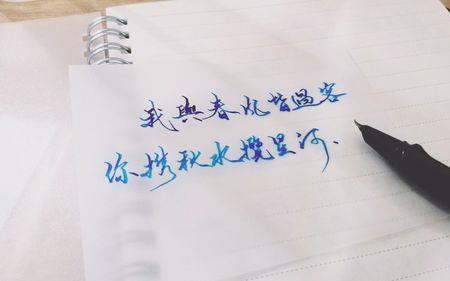 我與春风皆過客
你携秋水攬星河.